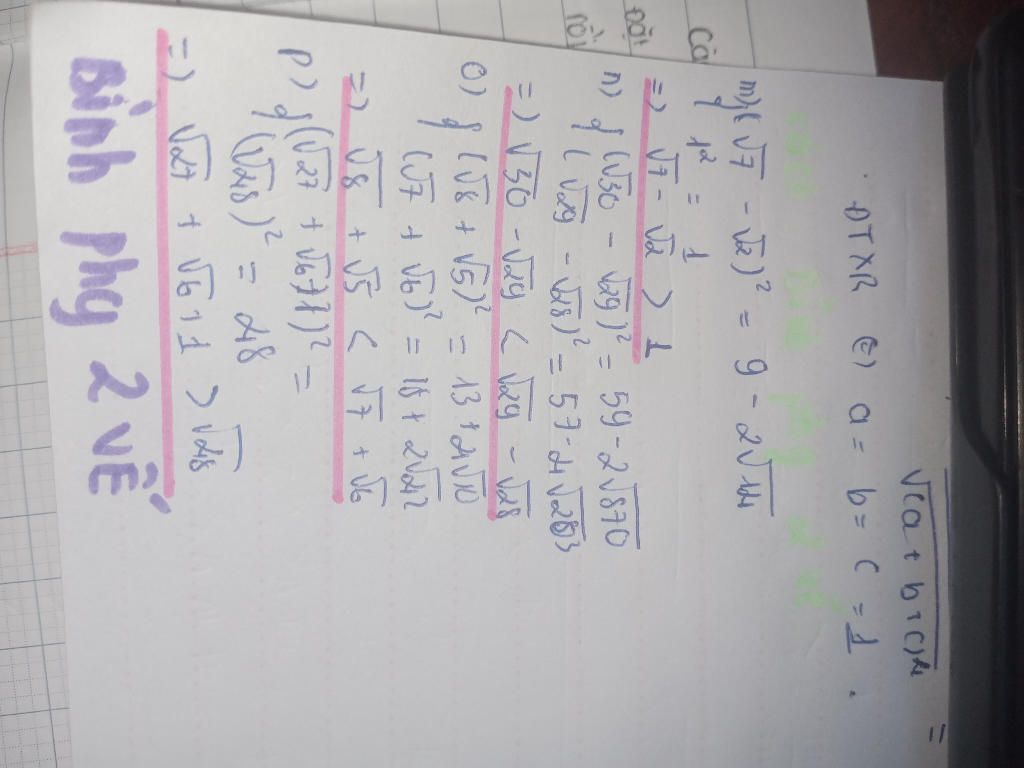 √(a+b+c)² =
ĐTXR (=) a = b = c = 1.
m) (√7 - √2)² = 9 - 2√14
1² = 1
=) √7 - √2 > 1
n) (√30 - √29)² = 59 - 2√870
(√29 - √28)² = 57 - 4√203
=) √30 - √29 < √29 - √28
o) (√8 + √5)² = 13 + 4√10
(√7 + √6)² = 13 + 2√42
=) √8 + √5 < √7 + √6
p) (√27 + √6 + 1)² =
(√48)² = 48
=) √27 + √6 + 1 > √48
Bình phg 2 vế
Cà
Đội